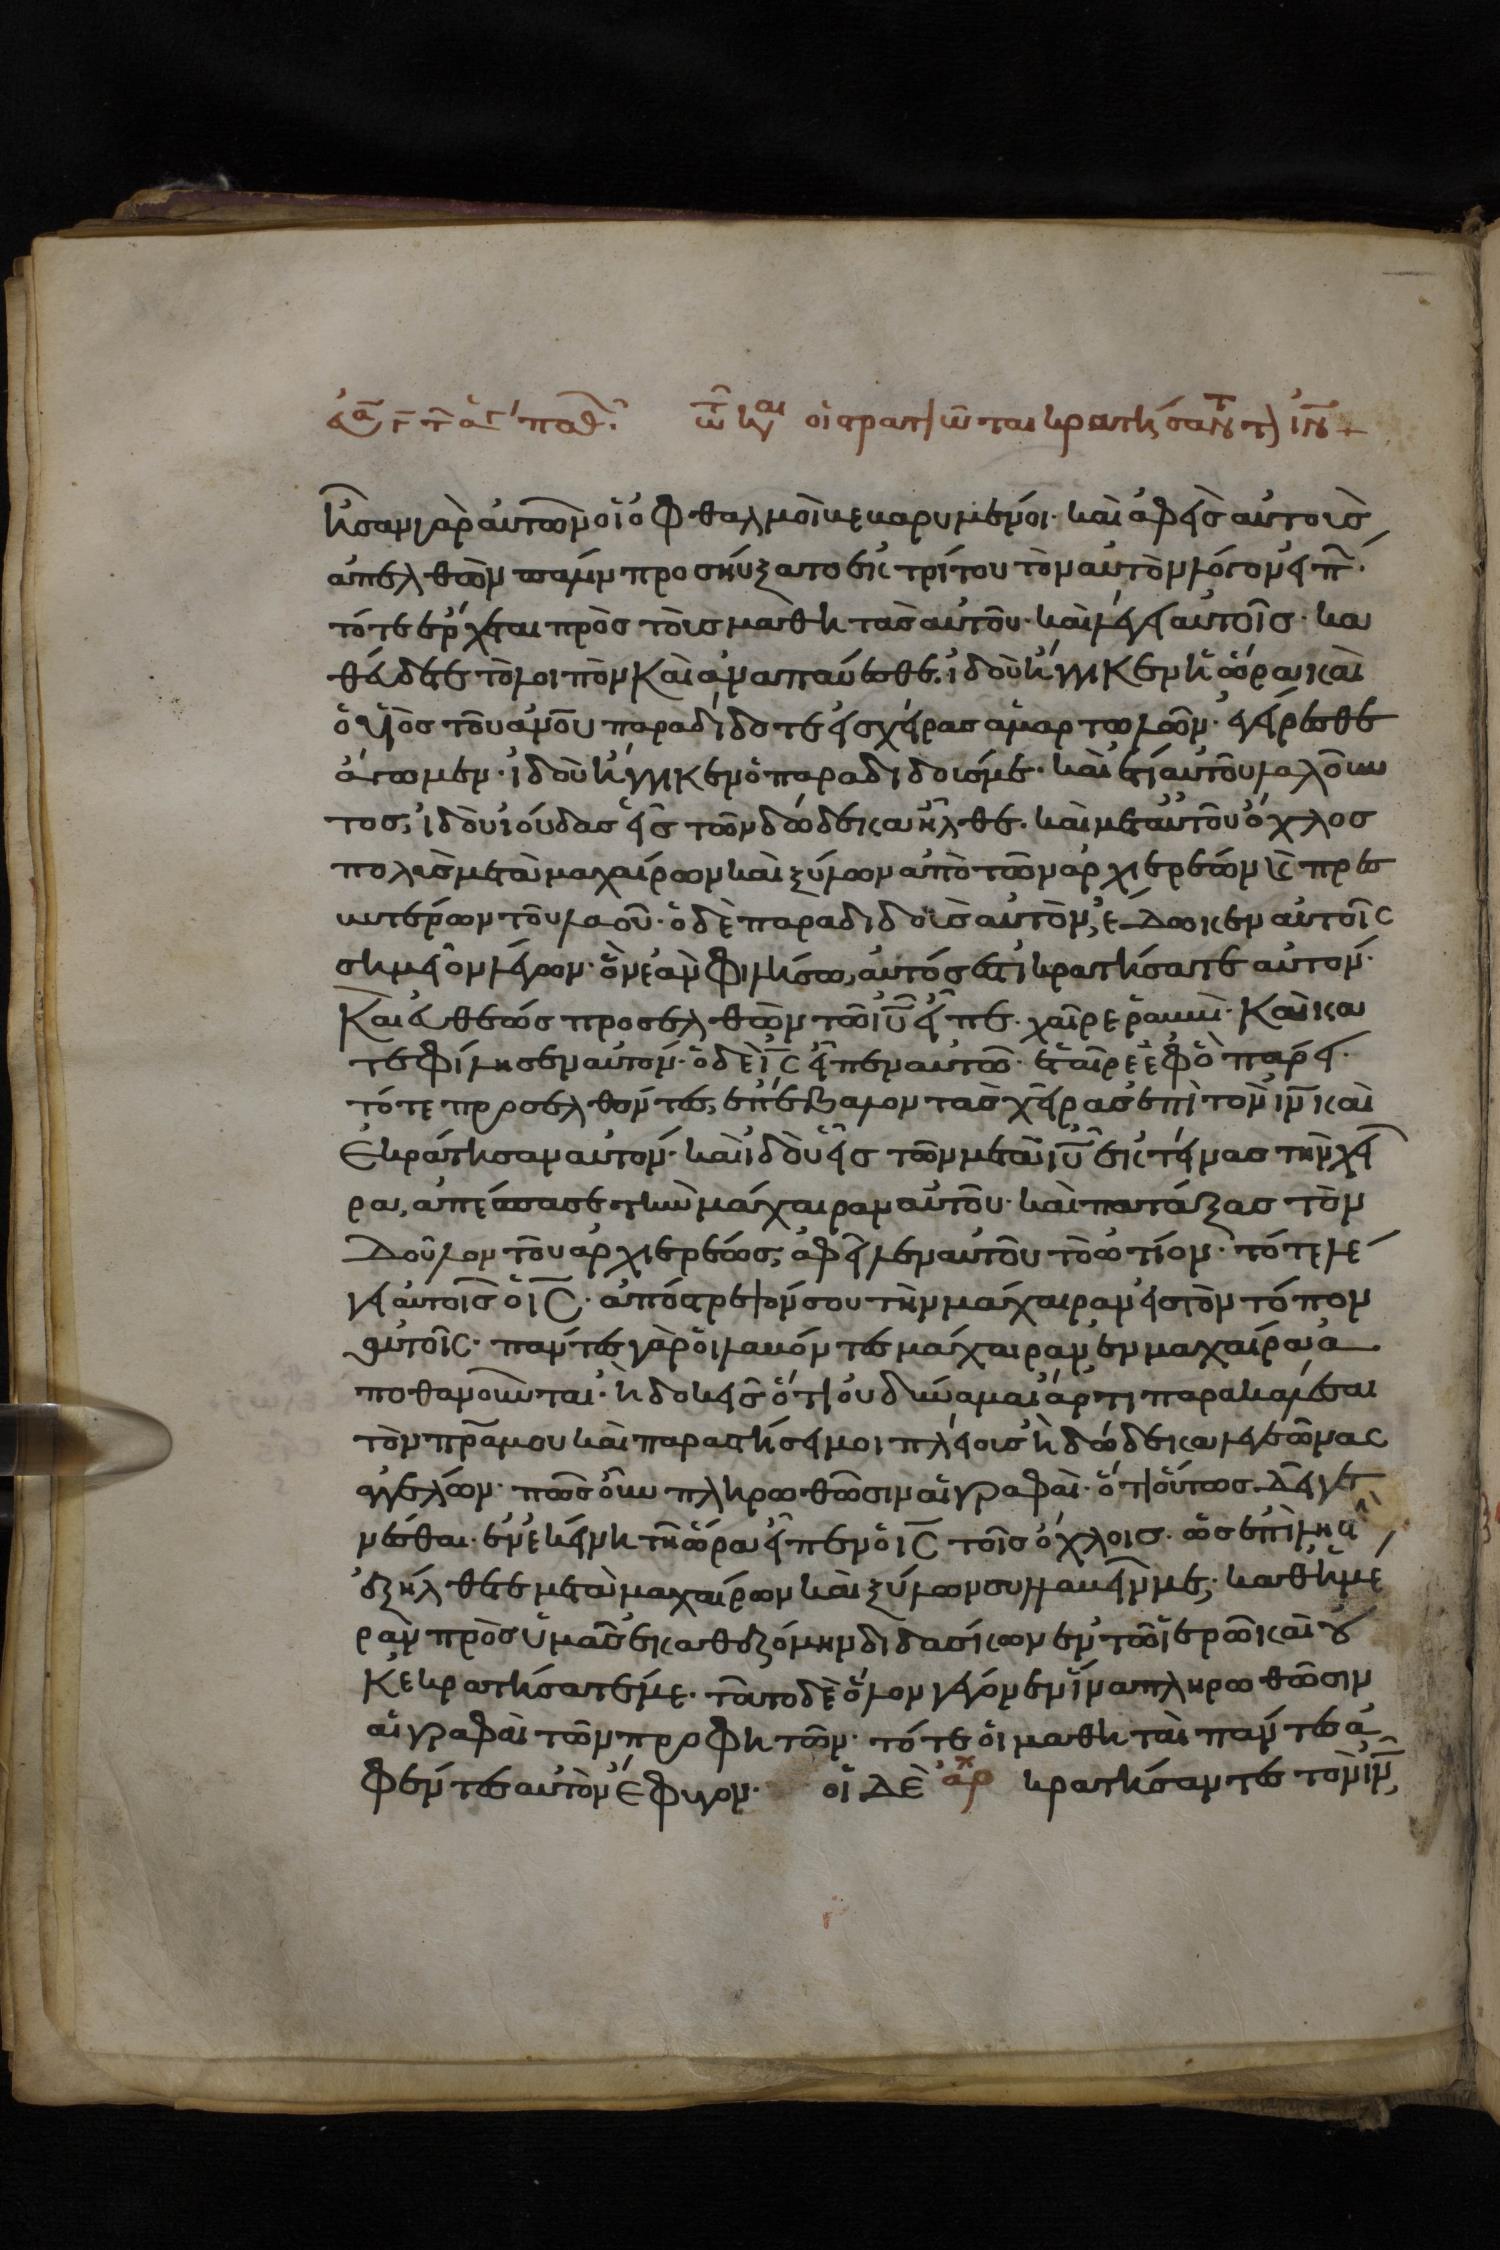 εὐα γ τ ἁγ παθ. τῶ κ αι οἱ στρατιῶται κρατήσαντ τ ιν +
ἦσαν γὰρ αὐτῶν οἱ ὀφθαλμοὶ κεκαρυμένοι· καὶ ἀφεὶς αὐτοὺς
ἀπελθὼν πάλιν προσηύξατο ἐκ τρίτου τὸν αὐτὸν λόγον εἰπ·
τότε ἔρχεται πρὸς τοὺς μαθητὰς αὐτοῦ· καὶ λέγει αὐτοῖς· κα
θεύδετε τὸ λοιπὸν καὶ ἀναπαύεσθε. ἰδοὺ ἤγγικεν ἡ ὥρα καὶ
ὁ υἱὸς τοῦ ανου παραδίδοτε εἰς χεῖρας ἁμαρτωλῶν· ἐγείρεσθε
ἄγωμεν· ἰδοὺ ἤγγικεν ὁ παραδιδούς με· καὶ ἔτι αὐτοῦ λαλοῦν
τος, ἰδοὺ ἰούδας εἷς τῶν δώδεκα ἦλθε· καὶ μετ αὐτοῦ ὄχλος
πολὺς μετὰ μαχαιρῶν καὶ ξύλων ἀπὸ τῶν ἀρχιερέων κ πρεσ
βυτέρων τοῦ λαοῦ· ὁ δὲ παραδιδοὺς αὐτὸν, ἔδωκεν αὐτοῖς
σημεῖον λέγων· ὃν ἐὰν φιλήσω, αὐτός ἐστι κρατήσατε αὐτόν·
Καὶ εὐθέως προσελθὼν τῶ ιυ εἶπε· χαῖρε ῥαββί· Καὶ κα
τεφίλησεν αὐτόν· ὁ δὲ ις εἶπεν αὐτῶ· ἑταῖρε ἐφ ὃ πάρει·
τότε προσελθόντες, ἐπέβαλον τὰς χεῖρας ἐπὶ τὸν ιν καὶ
ἐκράτησαν αὐτόν· καὶ ἰδοὺ εἷς τῶν μετὰ ιυ ἐκτείνας τὴν χεῖ
ρα, ἀπέσπασε τὴν μάχαιραν αὐτοῦ· καὶ πατάξας τὸν
Δοῦλον τοῦ ἀρχιερέως, ἀφεῖλεν αὐτοῦ τὸ ὠτίον· τότε λέ
γει αὐτοῖς ὁ ις· ἀπόστρεψόν σου τὴν μάχαιραν εἰς τὸν τόπον
αὐτοῖς· πάντες γὰρ οἱ λαβόντες μάχαιραν, ἐν μαχαίρα ἀ
ποθανοῦνται· ἢ δοκεῖς ὅτι οὐ δύναμαι ἄρτι παρακαλέσαι
τὸν πρα μου καὶ παραστήσει μοι πλείους ἢ δώδεκα λεγεῶνας
ἀγγέλων· πῶς οὖν πληρωθῶσιν αἱ γραφαί· ὅτι οὕτως Δεῖ γε
νέσθαι· ἐν ἐκείνη τῆ ὥρα εἶπεν ὁ ις τοῖς ὄχλοις· ὡς ἐπὶ ληστ
ἐξήλθετε μετὰ μαχαιρῶν καὶ ξύλων συλλαβεῖν με· καθ ἡμέ
ραν πρὸς ὑμᾶς ἐκαθεζόμην διδάσκων ἐν τῶ ἱερῶ καὶ οὐ
κ ἐκρατήσατέ με· τοῦτο δὲ ὅλον γέγονεν ἵνα πληρωθῶσιν
αἱ γραφαὶ τῶν προφητῶν· τότε οἱ μαθηταὶ πάντες ἀ
φέντες αὐτὸν ἔφυγον· οἱ ΔΕ ἀρχ κρατήσαντες τὸν ιν,